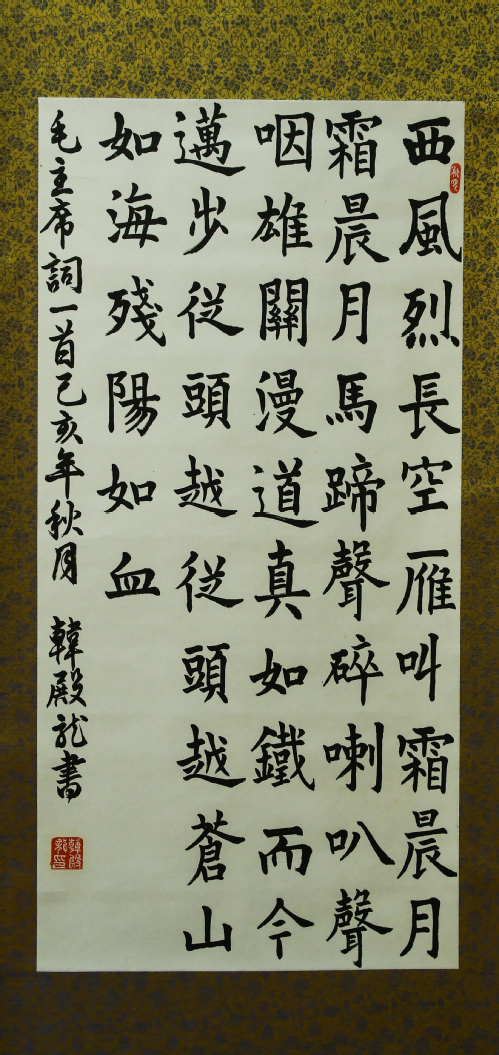 西風烈長空雁叫霜晨月
霜晨月馬蹄聲碎喇叭聲
咽雄關漫道真如鐵而今
邁步従頭越従頭越蒼山
如海殘陽如血
毛主席詞一首己亥年秋月 韓殿龍書
韓殿龍印